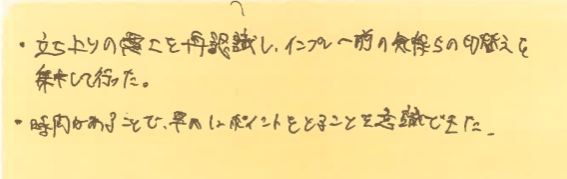 ・立ち上りの意工を再認識し、インプレー前の気持ちの切替えを
集中して行った。
・時間があることで、早めにポイントをとることを意識できた。